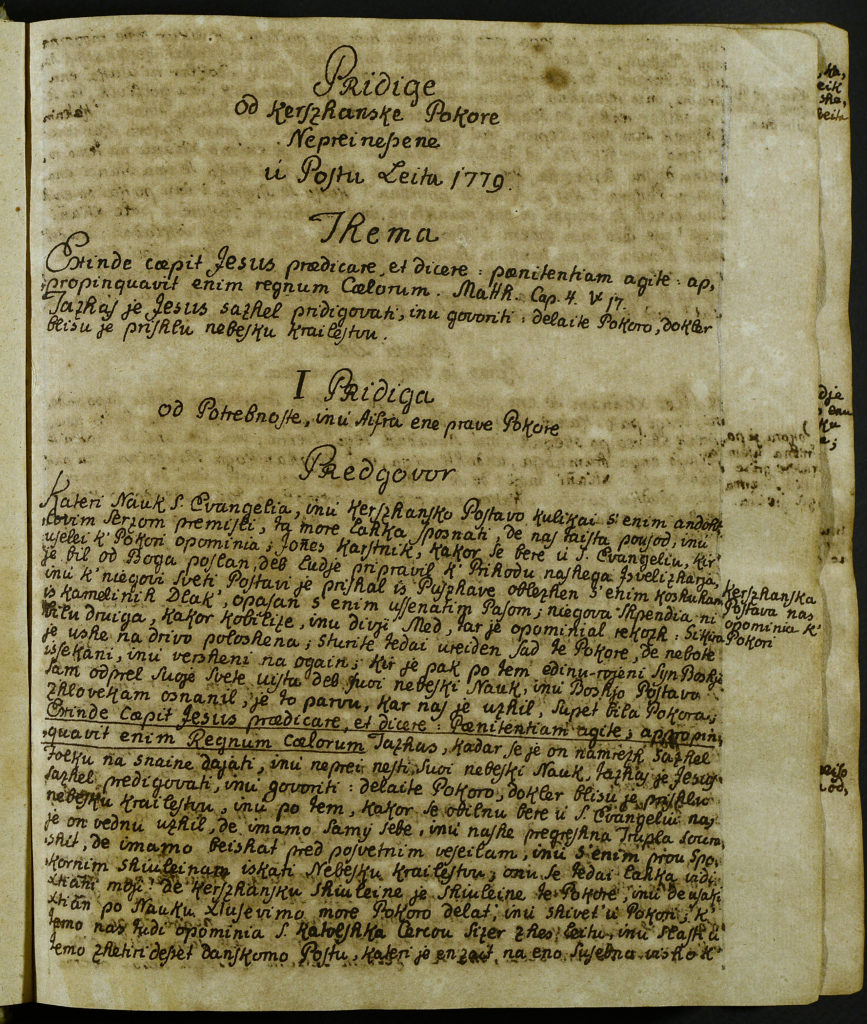 Pridige
od kerszhanske Pokore
Nepreineſene
ú Poſtu Leita 1779.
Thema
Exinde cæpit Jesus prædicare, et dicere : pænitentiam agite : ap,
propinquavit enim regnum Cælorum. Matth. Cap. 4. V 17.
Tazhaj je Jesus sazhel pridigovati, inu govoriti : delaite Pokoro, dokler
blisu je priſhlu nebeſku kraileſtvu.
I Pridiga
od Potrebnoſte, inu Aifra ene prave Pokore
Predgovor
Kateri Nauk S. Evangelia, inu kerszhansko Poſtavo kulikai s'enim andoht,
,lovim Serzom premiſli, ta more lahka ſposnati, de nas taiſta pouſod, inu
uſelei k' Pokori opominia ; Joñes Karſtnik, kakor ſe bere ú S. Evangeliu, kir
je bil od Boga poſlan, deb ludje pripravil k' Prihodu naſhega Isvelizharja,
inu k' niegovi Sveti Poſtavi je priſhal is Puszhave oblezhen s'enim koshuham
is kamelinih Dlak, opaſan s'enim uſſenatim Paſom ; niegova Shpendia ni
bila druiga, kakor kobilize, inu divji Med, tar je opominial rekozh : Sikira
je ushe na drivo poloshena ; sturite tedai vreiden Sad te Pokore, de nebote
isſekani, inu versheni na ogain ; kir je pak po tem edinu-rojeni Syn Boshji
ſam odprel ſuoje ſvete uiſta deb ſuoi nebeſki Nauk, inu Boshjo Poſtavo
zhlovekam osnanil, je to parvu, kar nas je uzhil, ſupet bila Pokora ;
Exinde Cæpit Jesus prædicare, et dicere : Pænitentiam agite ; appropin,
,quavit enim Regnum Cælorum Tazhas, kadar ſe je on namrezh sazhel
Folku na snaine dajati, inu neprei neſti ſuoi nebeſki Nauk, tazhaj je Jesus
sazhel predigovati, inu govoriti : delaite Pokoro, dokler blisu je priſhlu
nebeſku kraileſtvu, inu po tem, kakor ſe obilnu bere ú S. Evangeliu nas
je on vednu uzhil, de imamo ſamy ſebe, inu naſhe pregreſhna Trupla ſoura,
shit, de imamo beishat pred poſvetnim veſeilam, inu s'enim prou ſpo,
kornim shiuleinam iskati Nebeſku kraileſtvu ; onu ſe tedai lahka vidi
de kerszhanſku shiuleine je shiuleine te Pokore, inu de uſaki
po Nauku more Pokoro delat, inu shivet ú Pokori ; k'
temo nas tudi opominia S. katolſhka Cercou ſizer zhes leitu, inu ſlaſti ú
temo zhetiri deſet danſkomo Poſtu, kateri je enzait na eno ſuſebna visho k'
kerszhanska
Poſtava nas
opominia k'
Pokori